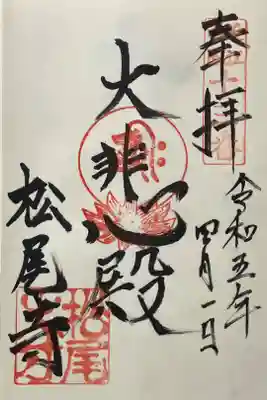 奉拝
令和五年
四月一日
大悲殿
松尾寺
松尾寺